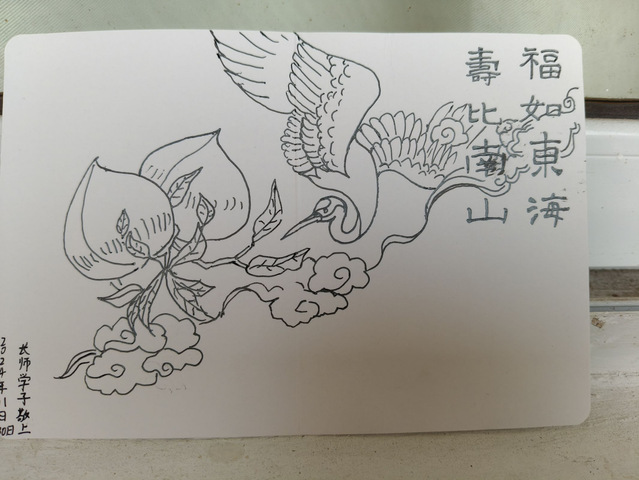 福如東海
壽比南山
长师学子敬上
2024年11日30日